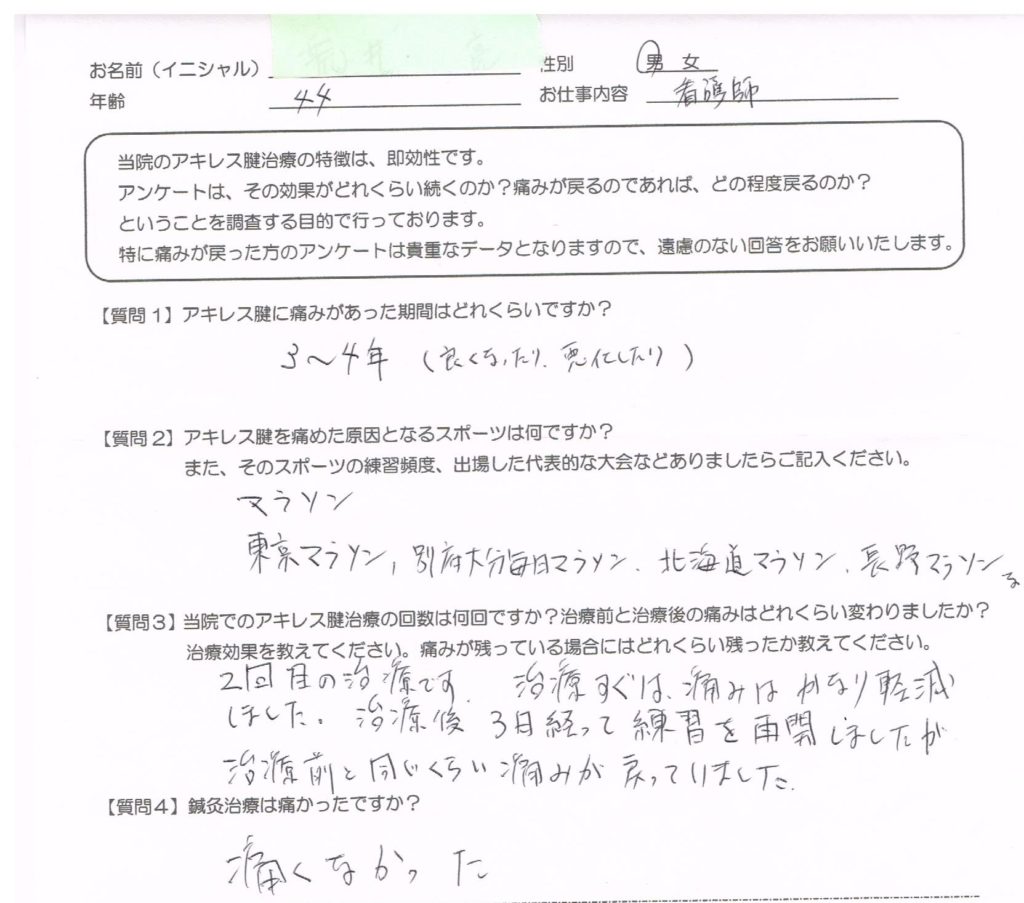 お名前（イニシャル） 性別 男 女
年齢 44 お仕事内容 看護師
当院のアキレス腱治療の特徴は、即効性です。
アンケートは、その効果がどれくらい続くのか？痛みが戻るのであれば、どの程度戻るのか？
ということを調査する目的で行っております。
特に痛みが戻った方のアンケートは貴重なデータとなりますので、遠慮のない回答をお願いいたします。
【質問1】アキレス腱に痛みがあった期間はどれくらいですか？
3〜4年（良くなったり、悪化したり）
【質問2】アキレス腱を痛めた原因となるスポーツは何ですか？
また、そのスポーツの練習頻度、出場した代表的な大会などありましたらご記入ください。
マラソン
東京マラソン, 別府大分毎日マラソン、北海道マラソン、長野マラソン
【質問3】当院でのアキレス腱治療の回数は何回ですか？治療前と治療後の痛みはどれくらい変わりましたか？
治療効果を教えてください。痛みが残っている場合にはどれくらい残ったか教えてください。
2回目の治療です. 治療すぐは、痛みは かなり軽減
しました。治療後 3日経って練習を再開しましたが
治療前と同じくらい痛みが戻っていました.
【質問4】鍼灸治療は痛かったですか？
痛くなかった